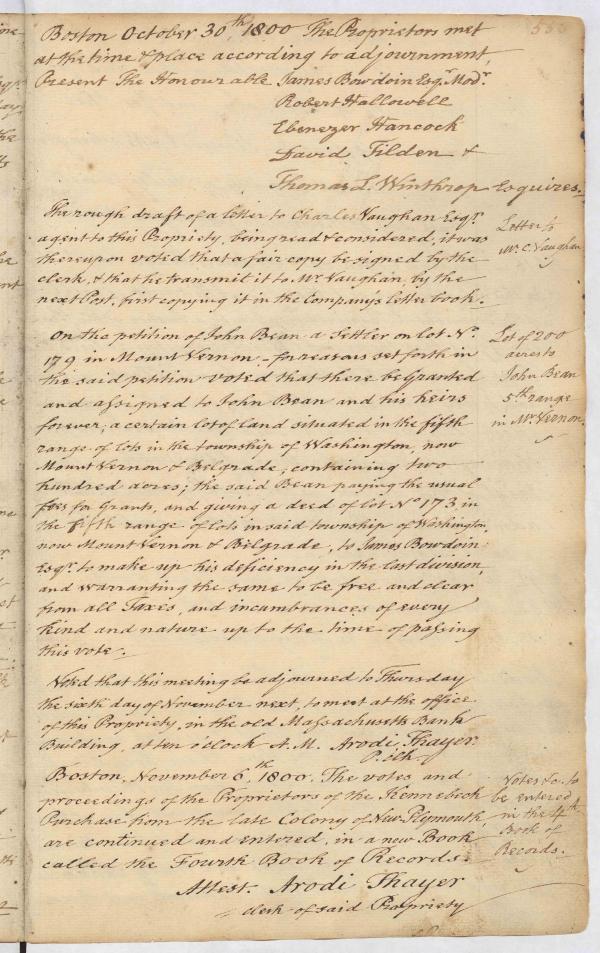 Boston October 30th, 1800 The Proprietors met
at the time & place according to adjournment,
Present The Honourable James Bowdoin Esqr. Modr.
Robert Hallowell
Ebenezer Hancock
David Tilden &
Thomas L. Winthrop Esquires.
The rough draft of a letter to Charles Vaughan Esqr.
agent to this Propriety, being read & considered, it was
thereupon voted that a fair copy be signed by the
clerk, & that he transmit it to Mr. Vaughan, by the
next Post, first copying it in the Company's letter book.
Letter to
Mr. C. Vaughan
On the petition of John Bean a Settler on lot No.
179 in Mount Vernon - for reasons set forth in
the said petition voted that there be Granted
and assigned to John Bean and his heirs
forever; a certain lot of land situated in the fifth
range of lots in the township of Washington, now
Mount Vernon & Belgrade; containing two
hundred acres; the said Bean paying the usual
fees for Grants, and giving a deed of lot No 173, in
the fifth range of lots in said township of Washington,
now Mount Vernon & Belgrade, to James Bowdoin
Esqr. to make up his deficiency in the last division,
and warranting the same to be free and clear
from all Taxes, and incumbrances of every
kind and nature up to the time of passing
this vote.
Lot of 200
acres to
John Bean
5th range
in Mt. Vernon.
Voted that this meeting be adjourned to Thursday
the sixth day of November next, to meet at the office
of this Propriety, in the old Massachusetts Bank
Building, at ten o'clock A.M. Arodi Thayer
P. Clk.
Boston, November 6th, 1800. The votes and
proceedings of the Proprietors of the Kennebeck
Purchase from the late Colony of New Plymouth,
are continued and entered, in a new Book
called the Fourth Book of Records.
Votes &c. to
be entered
in the 4th
Book of
Records.
Attest. Arodi Thayer
clerk of said Propriety